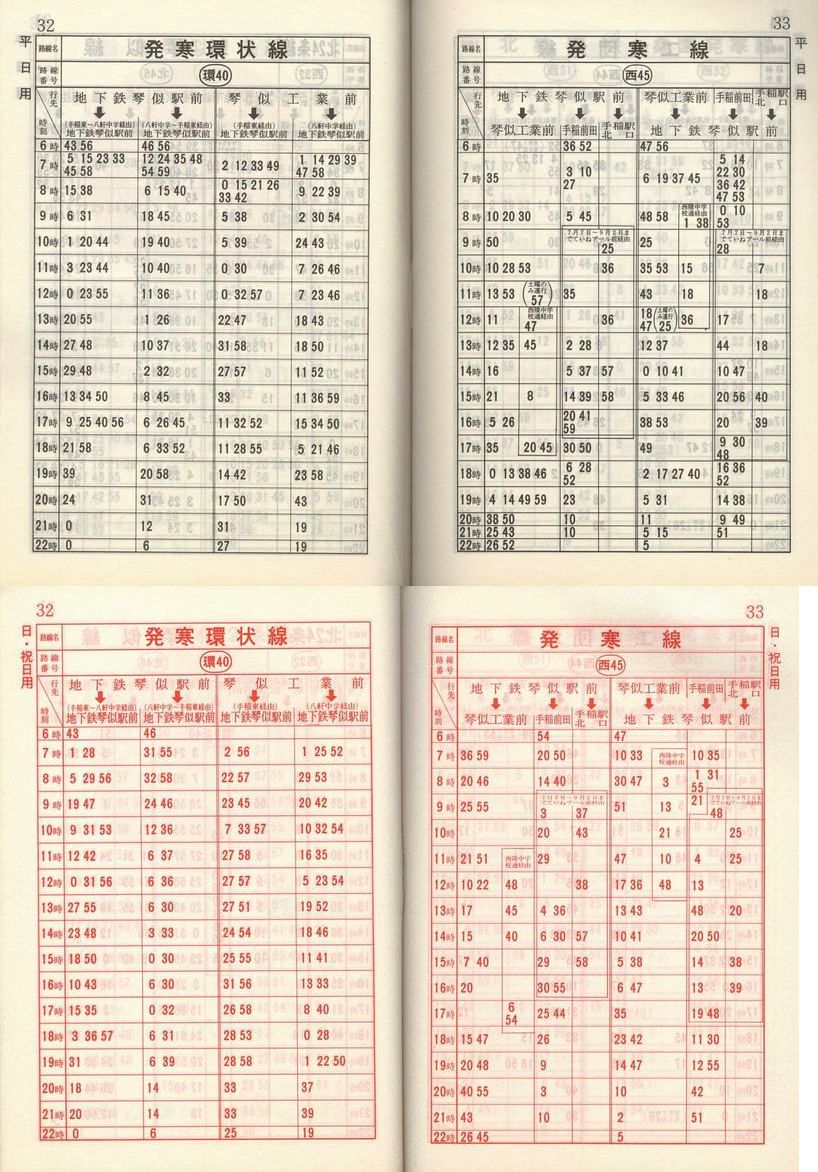 32
平日用
路線名 発寒環状線
路線番号 環40
行先 時刻
地下鉄琴似駅前 琴似工業前
(手稲東～八軒中学経由) (八軒中学～手稲東経由) (手稲東経由) (八軒中学経由)
地下鉄琴似駅前 地下鉄琴似駅前 地下鉄琴似駅前 地下鉄琴似駅前
6時 43 56 46 56
7時 5 15 23 33 12 24 35 48 2 12 33 49 1 14 29 39
45 58 54 59 47 58
8時 15 38 6 15 40 0 15 21 26 9 22 39
33 42
9時 6 31 18 45 5 38 2 30 54
10時 1 20 44 19 40 5 39 24 43
11時 3 23 44 10 40 0 30 7 26 46
12時 0 23 55 11 36 0 32 57 7 23 46
13時 20 55 1 26 22 47 18 43
14時 27 48 10 37 31 58 18 50
15時 29 48 2 32 27 57 11 52
16時 13 34 50 8 45 33 11 36 59
17時 9 25 40 56 6 26 45 11 32 52 15 34 50
18時 21 58 6 33 52 11 28 55 5 21 46
19時 39 20 58 14 42 23 58
20時 24 31 17 50 43
21時 0 12 31 19
22時 0 6 27 19
33
平日用
路線名 発寒工線
路線番号 西45
行先 時刻
地下鉄琴似駅前 琴似工業前 手稲前田 手稲駅北口
琴似工業前 手稲前田 手稲駅北口 地下鉄琴似駅前
6時 36 52 47 56
7時 35 3 10 6 19 37 45 5 14
27 22 30
36 42
47 53
8時 10 20 30 5 45 48 58 西陵中学校通経由 1 38 0 10
53
9時 50 7月7日～9月2日までていねプール前経由 25 25 7月7日～9月2日までていねプール前経由 28
10時 10 28 53 36 35 53 15 7
11時 13 53 土曜のみ運行 57 35 43 18 18
12時 11 西陵中学校通経由 47 36 18 47 土曜のみ運行 25 36 17
13時 12 35 45 2 28 12 37 44 18
14時 16 5 37 57 0 10 41 10 47
15時 21 8 14 39 58 5 33 46 20 56 40
16時 5 26 20 41 38 53 20 39
59
17時 35 20 45 30 50 49 9 30
48
18時 0 13 38 46 6 28 2 17 27 40 16 36
52 52
19時 4 14 49 59 23 5 31 14 38
20時 38 50 10 11 9 49
21時 25 43 10 5 15 51
22時 26 52 5
32
日・祝日用
路線名 発寒環状線
路線番号 環40
行先 時刻
地下鉄琴似駅前 琴似工業前
(手稲東～八軒中学経由) (八軒中学～手稲東経由) (手稲東経由) (八軒中学経由)
地下鉄琴似駅前 地下鉄琴似駅前 地下鉄琴似駅前 地下鉄琴似駅前
6時 43 46
7時 1 28 31 55 2 56 1 25 52
8時 5 29 56 32 58 22 57 29 53
9時 19 47 24 46 23 45 20 42
10時 9 31 53 12 36 7 33 57 10 32 54
11時 12 42 6 37 27 58 16 35
12時 0 31 56 6 36 27 57 5 23 54
13時 27 55 6 30 27 51 19 52
14時 23 48 3 33 24 54 18 46
15時 18 50 0 30 25 55 11 41
16時 10 43 6 30 31 56 13 33
17時 15 35 0 32 26 58 8 40
18時 3 36 57 6 31 28 53 0 28
19時 31 6 39 28 58 1 22 50
20時 18 14 33 37
21時 20 14 33 39
22時 0 6 25 19
33
日・祝日用
路線名 発寒工線
路線番号 西45
行先 時刻
地下鉄琴似駅前 琴似工業前 手稲前田 手稲駅北口
琴似工業前 手稲前田 手稲駅北口 地下鉄琴似駅前
6時 54 47
7時 36 59 20 50 10 33 西陵中学校通経由 10 35
8時 20 46 14 40 30 47 3 1 31
55
9時 25 55 7月7日～9月2日までていねプール前経由 3 37 51 13 21 7月7日～9月2日までていねプール前経由 48
10時 20 43 21 25
11時 21 51 西陵中学校通経由 29 47 10 4 25
12時 10 22 48 38 17 36 48 13
13時 17 45 4 36 13 43 48 20
14時 15 40 6 30 57 10 41 20 50
15時 7 40 29 58 5 38 14 38
16時 20 30 55 6 47 13 39
17時 6 54 25 44 35 19 48
18時 15 47 26 23 42 11 30
19時 20 48 9 14 47 12 55
20時 40 55 3 10 42
21時 43 10 2 51
22時 26 45 5